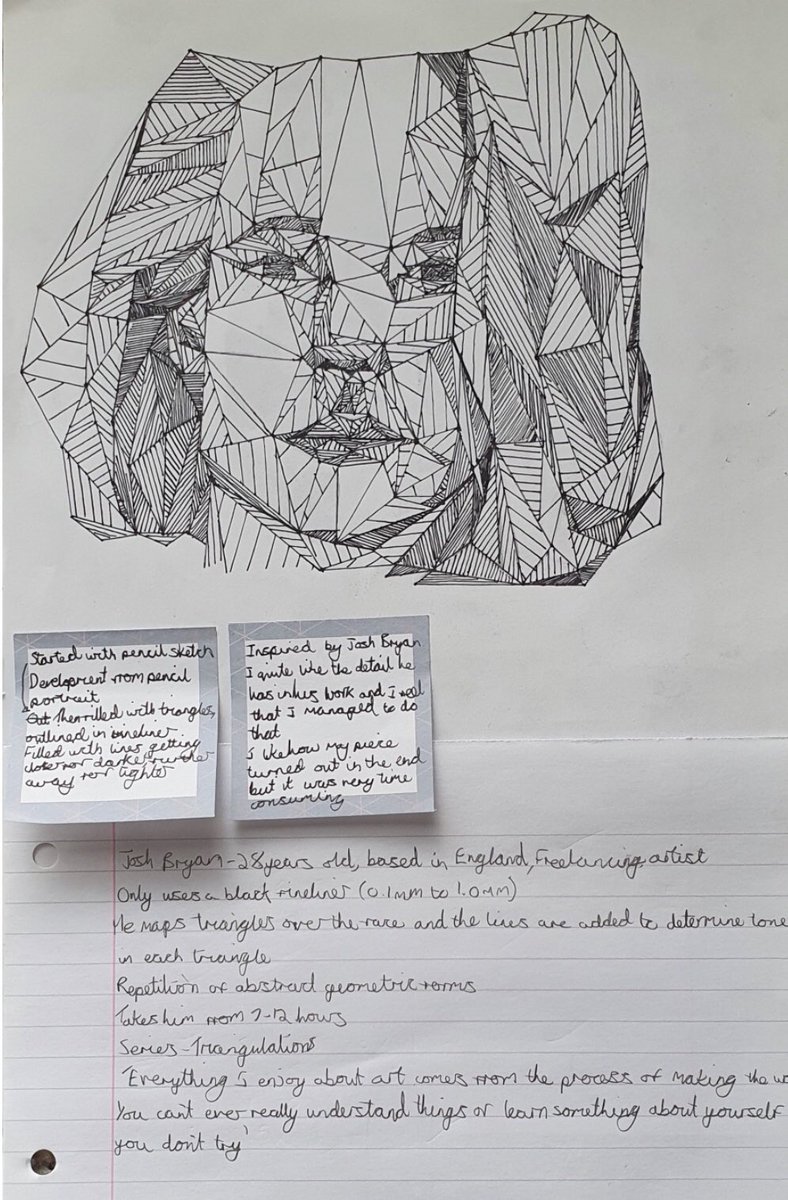 Started with pencil sketch
Development from pencil
portrait
Out Then filled with triangles,
outlined in fineliner
Filled with lines getting
closer for darker, further
away for lighter
Inspired by Josh Bryan
I quite like the detail he
has in his work and I feel
that I managed to do
that
I like how my piece
turned out in the end
but it was very time
consuming
Josh Bryan - 28 years old, based in England, Freelancing artist
Only uses a black fineliner (0.1mm to 1.0mm)
He maps triangles over the face and the lines are added to determine tone
in each triangle
Repetition of abstract geometric forms
Takes him from 7-12 hours
Series - Triangulations
'Everything I enjoy about art comes from the process of making the
You can't ever really understand things or learn something about yourself
you don't try'